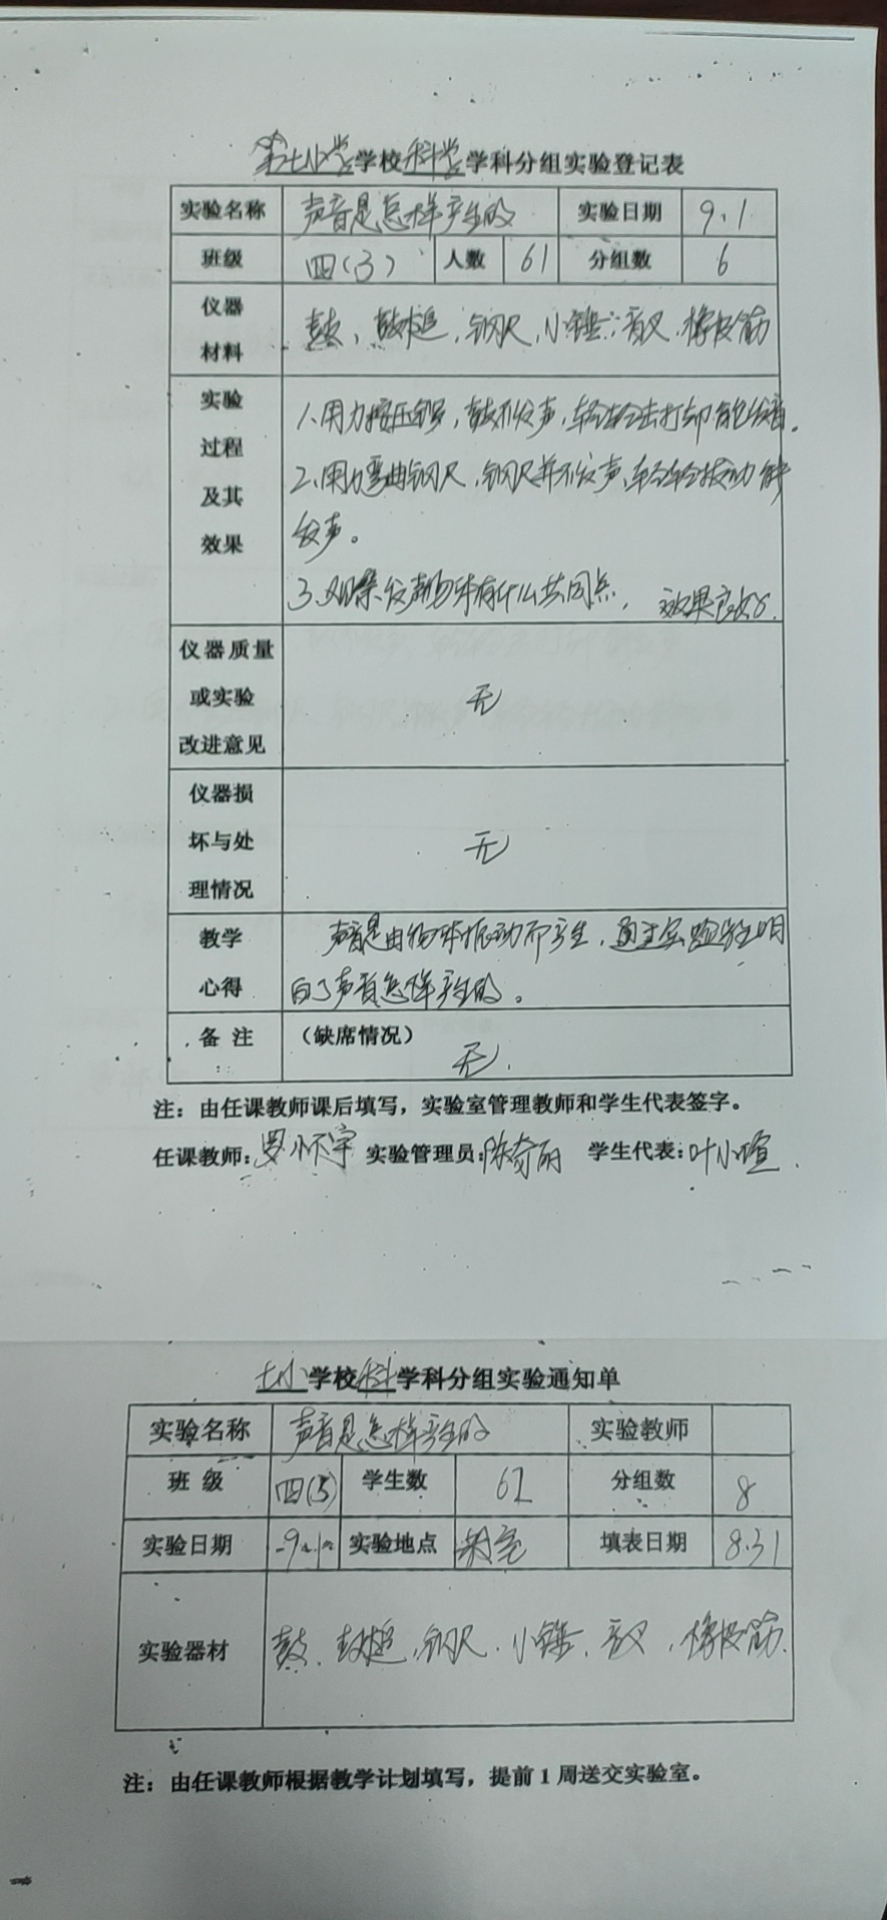 第七小学学校科学学科分组实验登记表
实验名称 声音是怎样产生的 实验日期 9.1
班级 四(3) 人数 61 分组数 6
仪器材料 鼓、鼓槌、钢尺、小锤、音叉、橡皮筋
实验过程及其效果
1、用力按压鼓,鼓不发声,轻轻击打却能发音。
2、用力弯曲钢尺,钢尺并不发声,轻轻拨动能
发声。
3、观察发声物体有什么共同点, 效果良好。
仪器质量或实验改进意见 无
仪器损坏与处理情况 无
教学心得 声音是由物体振动而产生,通过实验学生明
白了声音怎样产生的。
备 注 (缺席情况)
无.
注:由任课教师课后填写,实验室管理教师和学生代表签字。
任课教师:罗怀宇 实验管理员:陈奇丽 学生代表:叶小萱.
七小学校科学科分组实验通知单
实验名称 声音是怎样产生的 实验教师
班 级 四(3) 学生数 61 分组数 8
实验日期 9.1 实验地点 填表日期 8.31
实验器材 鼓、鼓槌、钢尺、小锤、音叉、橡皮筋.
注:由任课教师根据教学计划填写,提前1周送交实验室。